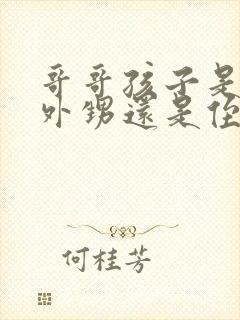 哥哥孩子是
外甥還是侄
何桂芳